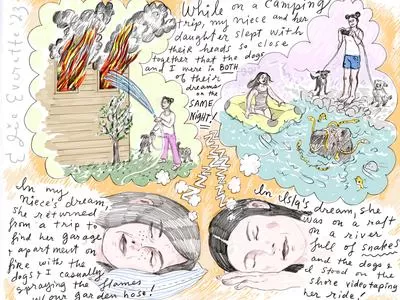 While on a camping
trip, my niece and her
daughter slept with
their heads so close
together that the dogs
and I were in BOTH
of their
dreams
on the
SAME
NIGHT!
In my
niece's dream,
she returned
from a trip to
find her garage
+ apartment on
fire with the
dogs + I casually
spraying the flames
w/ our garden hose!
In Isla's dream, she
was on a raft
on a river
full of snakes
and the dogs &
I stood on the
shore videotaping
her ride!